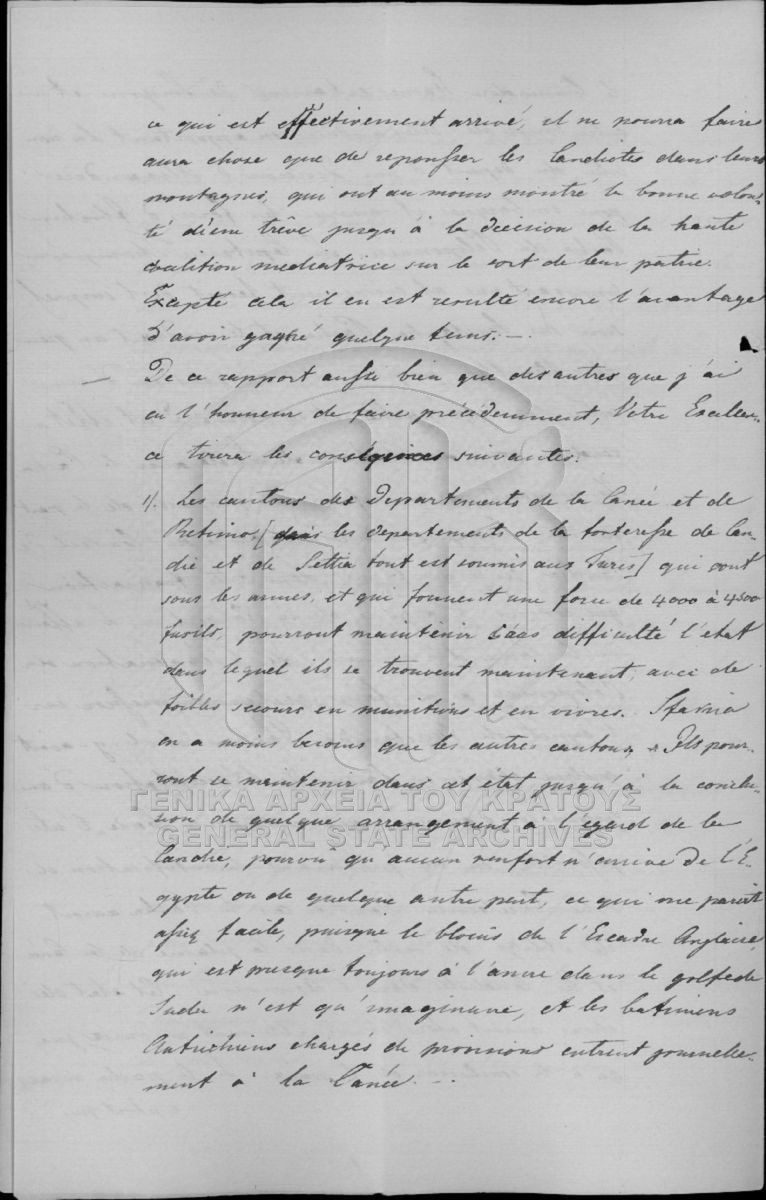 ce qui est effectivement arrivé, il ne pourra faire
autre chose que de repousser les Candiotes dans leurs
montagnes, qui ont au moins montré la bonne volon-
té d'une trêve jusqu'à la decision de la haute
coalition mediatrice sur le sort de leur patrie.
Excepté cela il en est resulté encore l'avantage
d'avoir gagné quelque tems. —
— De ce rapport aussi bien que des autres que j'ai
eu l'honneur de faire précédemment, Votre Excellen-
ce tirera les conséquences suivantes:
1/. Les cantons des departements de la Canée et de
Retimo, [dans les departements de la forteresse de Can-
die et de Settia tout est soumis aux Turcs] qui sont
sous les armes, et qui forment une force de 4000 à 4500
fusils, pourront maintenir sans difficulté l'etat
dans lequel ils se trouvent maintenant, avec de
foibles secours en munitions et en vivres. Sfakia
en a moins besoins que les autres cantons, Ils pour-
ront se maintenir dans cet état jusqu'à la conclu-
sion de quelque arrangement à l'egard de la
Candie, pourvû qu'aucun renfort n'arrive de l'E-
gypte ou de quelque autre part, ce qui me parait
assez facile, puisque le blocus de l'Escadre Anglaise,
qui est presque toujours à l'ancre dans le golfe de
Suda n'est qu'imaginaire, et les batimens
Autrichiens chargés de provisions entrent journelle-
ment à la Canée. —
ΓΕΝΙΚΑ ΑΡΧΕΙΑ ΤΟΥ ΚΡΑΤΟΥΣ
GENERAL STATE ARCHIVES